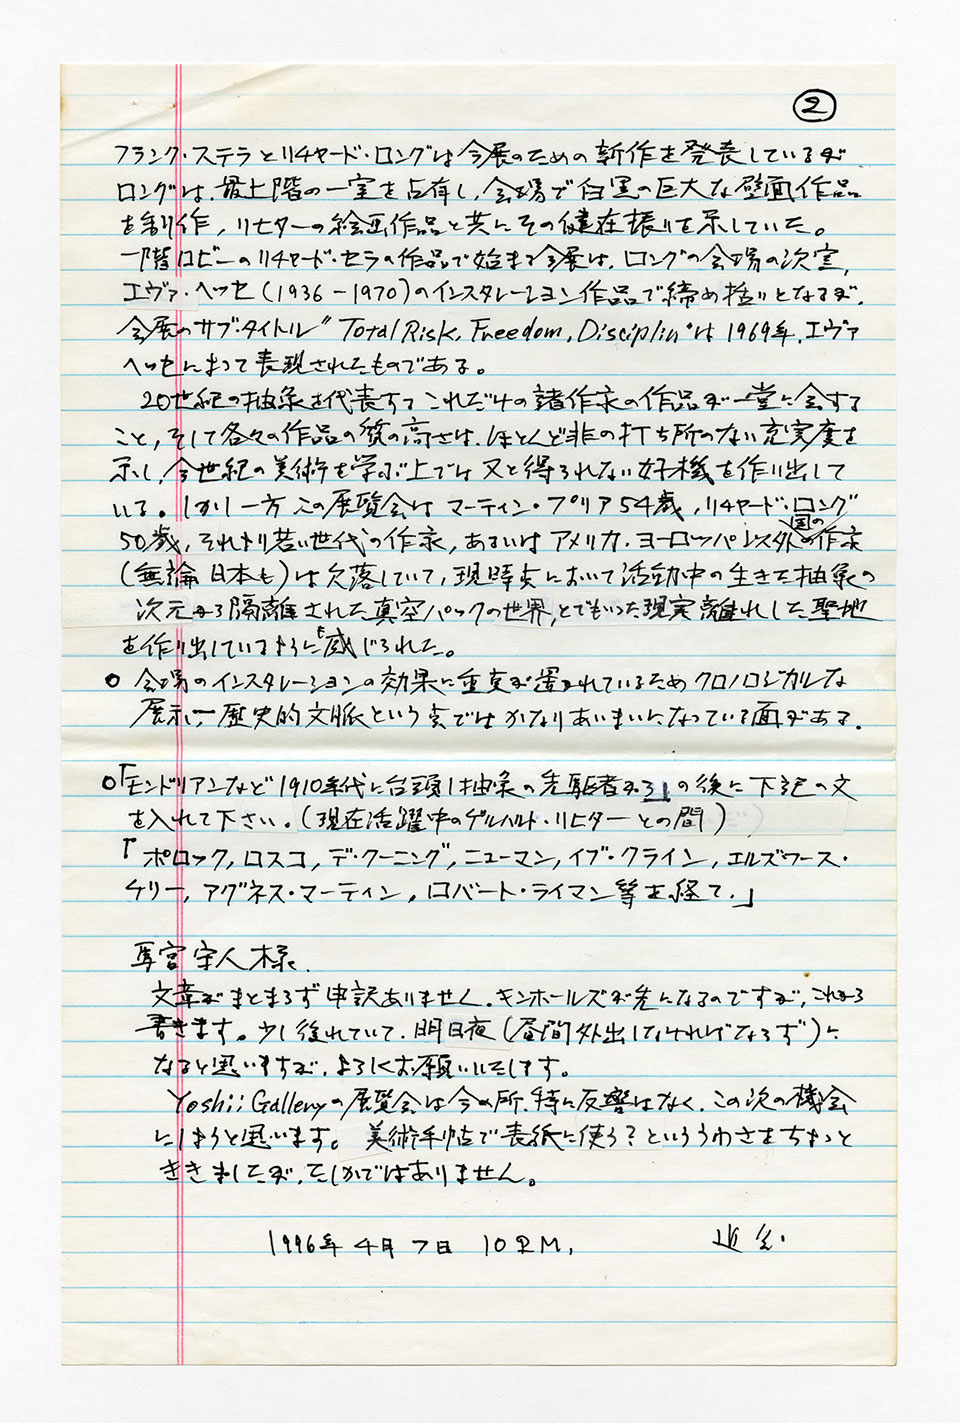 ②
フランク・ステラとリチャード・ロングは今展のための新作を発表しているが、
ロングは、最上階の一室を占有し、会場で白黒の巨大な壁面作品
を制作、リヒターの絵画作品と共にその健在振りを示していた。
一階ロビーのリチャード・セラの作品で始まる今展は、ロングの会場の次室、
エヴァ・ヘッセ(1936-1970)のインスタレーション作品で締め括りとなるが、
今展のサブ・タイトル"Total Risk, Freedom, Disciplin"は1969年、エヴァ
ヘッセによって表現されたものである。
20世紀の抽象を代表するこれだけの諸作家の作品が一堂に会する
こと、そして各々の作品の質の高さは、ほとんど非の打ち所のない充実度を
示し、今世紀の美術を学ぶ上では又と得られない好機を作り出して
いる。しかし一方この展覧会はマーティン・プリア54歳、リチャード・ロング
50歳、それより若い世代の作家、あるいはアメリカ・ヨーロッパ以外国の作家
(無論日本も)は欠落していて、現時点において活動中の生きた抽象の
次元から隔離された真空パックの世界、とでもいった現実離れした聖地
を作り出しているようにも感じられた。
○ 会場のインスタレーションの効果に重点が置かれているためクロノロジカルな
展示、歴史的文脈という点ではかなりあいまいになっている面がある。
○「モンドリアンなど1910年代に台頭し抽象の先駆者から」の後に下記の文
を入れて下さい。(現在活躍中のゲルハルト・リヒターとの間)
「ポロック, ロスコ, デ・クーニング, ニューマン, イブ・クライン, エルズワース・
ケリー, アグネス・マーティン, ロバート・ライマン等を経て、」
馬宮守人様、
文章がまとまらず申訳ありません。キンホールズが先になるのですが、これから
書きます。少し後れていて、明日夜(昼間外出しなければならず)に
なると思いますが、よろしくお願いいたします。
Yoshii Galleryの展覧会は今の所、特に反響はなく、この次の機会
にしようと思います。美術手帖で表紙に使う?といううわさをちょっと
ききましたが、たしかではありません。
1996年4月7日 10P.M.